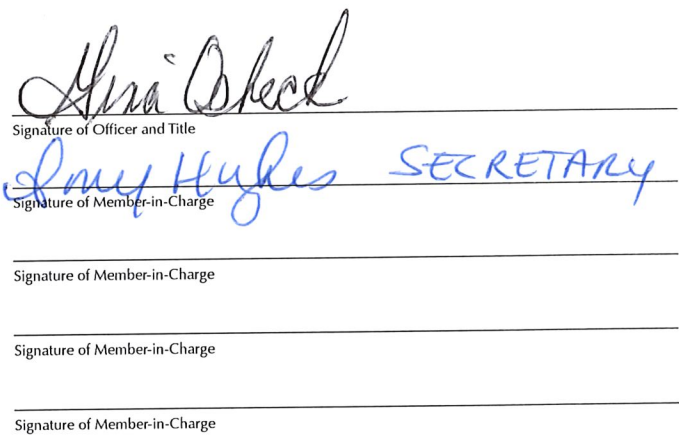 Gina Osheck
Signature of Officer and Title
Tony Hughes SECRETARY
Signature of Member-in-Charge
Signature of Member-in-Charge
Signature of Member-in-Charge
Signature of Member-in-Charge